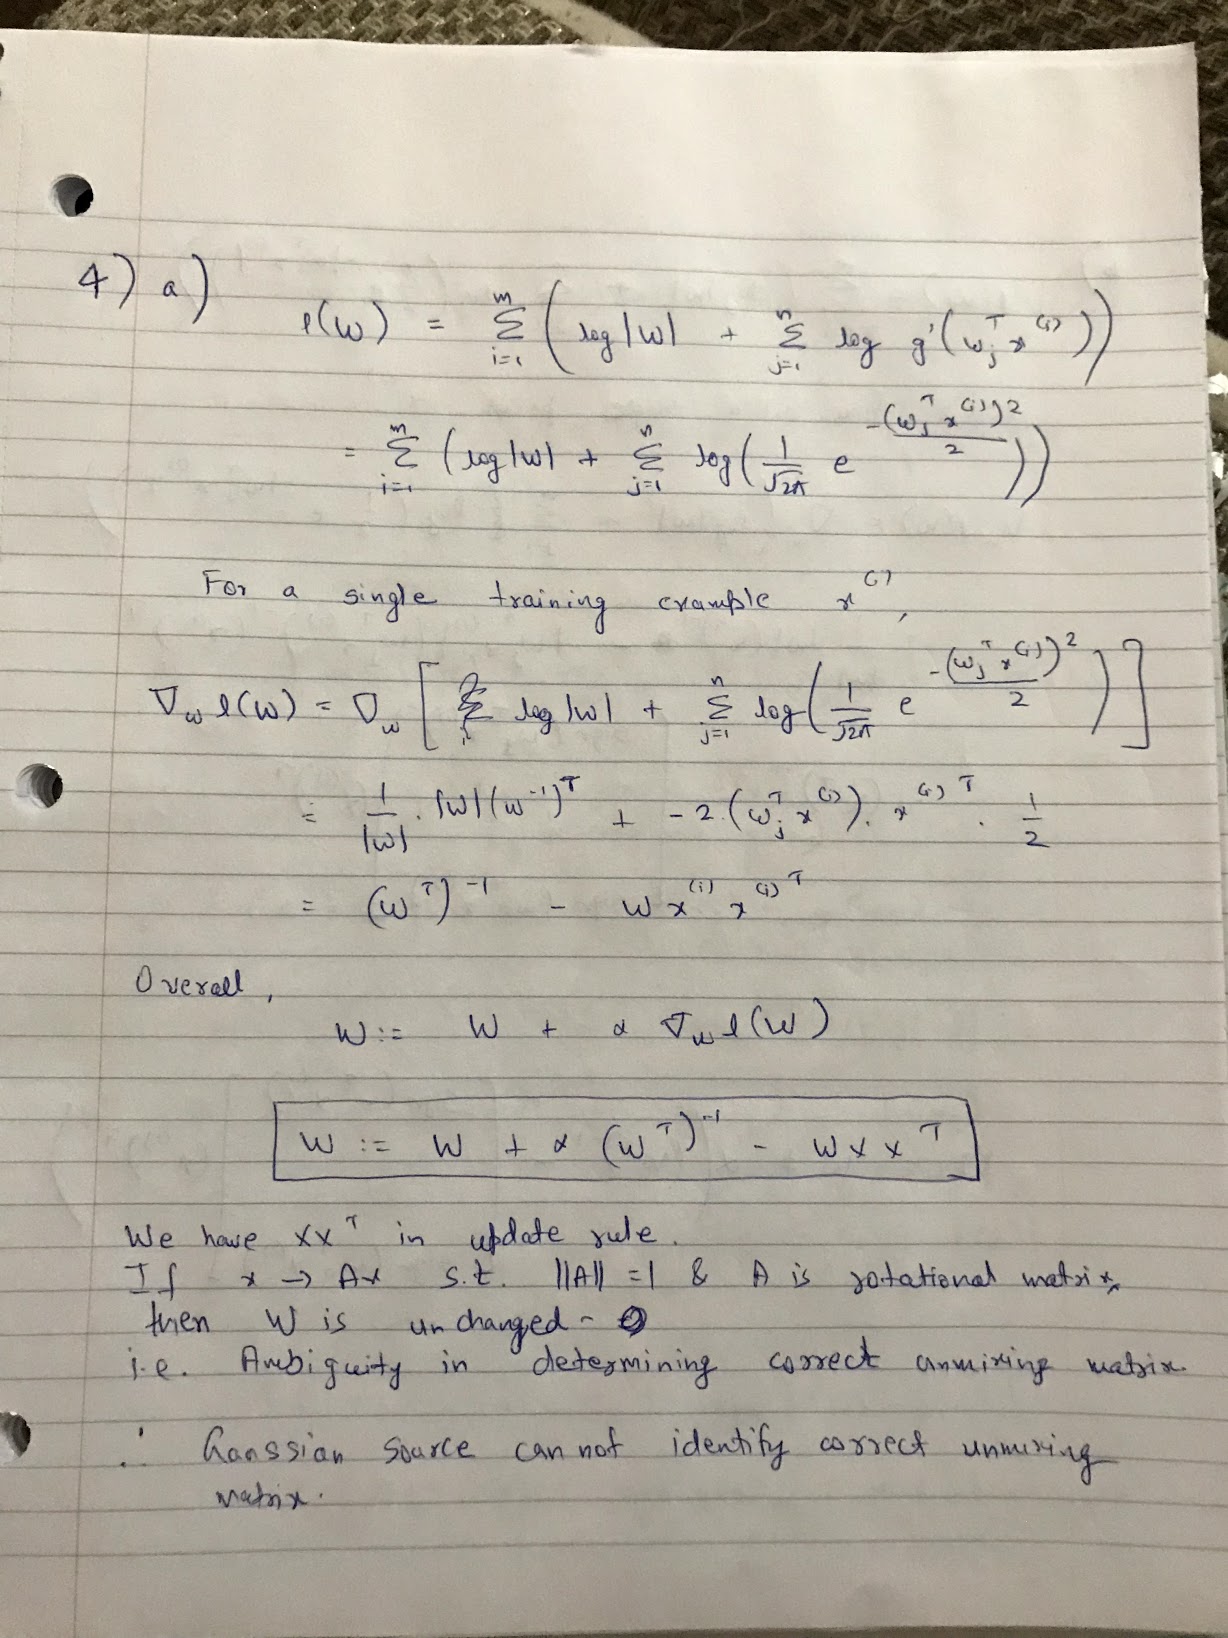 4) a) l(W) = m Σ i=1 ( log|W| + n Σ j=1 log g'(w_j^T x^(i)) )
= m Σ i=1 ( log|W| + n Σ j=1 log( 1/√2π e^(-(w_j^T x^(i))^2 / 2) ) )
For a single training example x^(i),
∇_w l(W) = ∇_w [ log|W| + n Σ j=1 log( 1/√2π e^(-(w_j^T x^(i))^2 / 2) ) ]
= 1/|W| . |W| (W^-1)^T + -2.(w_j^T x^(i)). x^(i)T . 1/2
= (W^T)^-1 - W x^(i) x^(i)T
Overall,
W := W + α ∇_w l(W)
W := W + α (W^T)^-1 - W x x^T
We have xx^T in update rule.
If x → Ax s.t. ||A|| = 1 & A is rotational matrix,
then W is unchanged -
i.e. Ambiguity in determining correct unmixing matrix.
∴ Gaussian source can not identify correct unmixing
matrix.